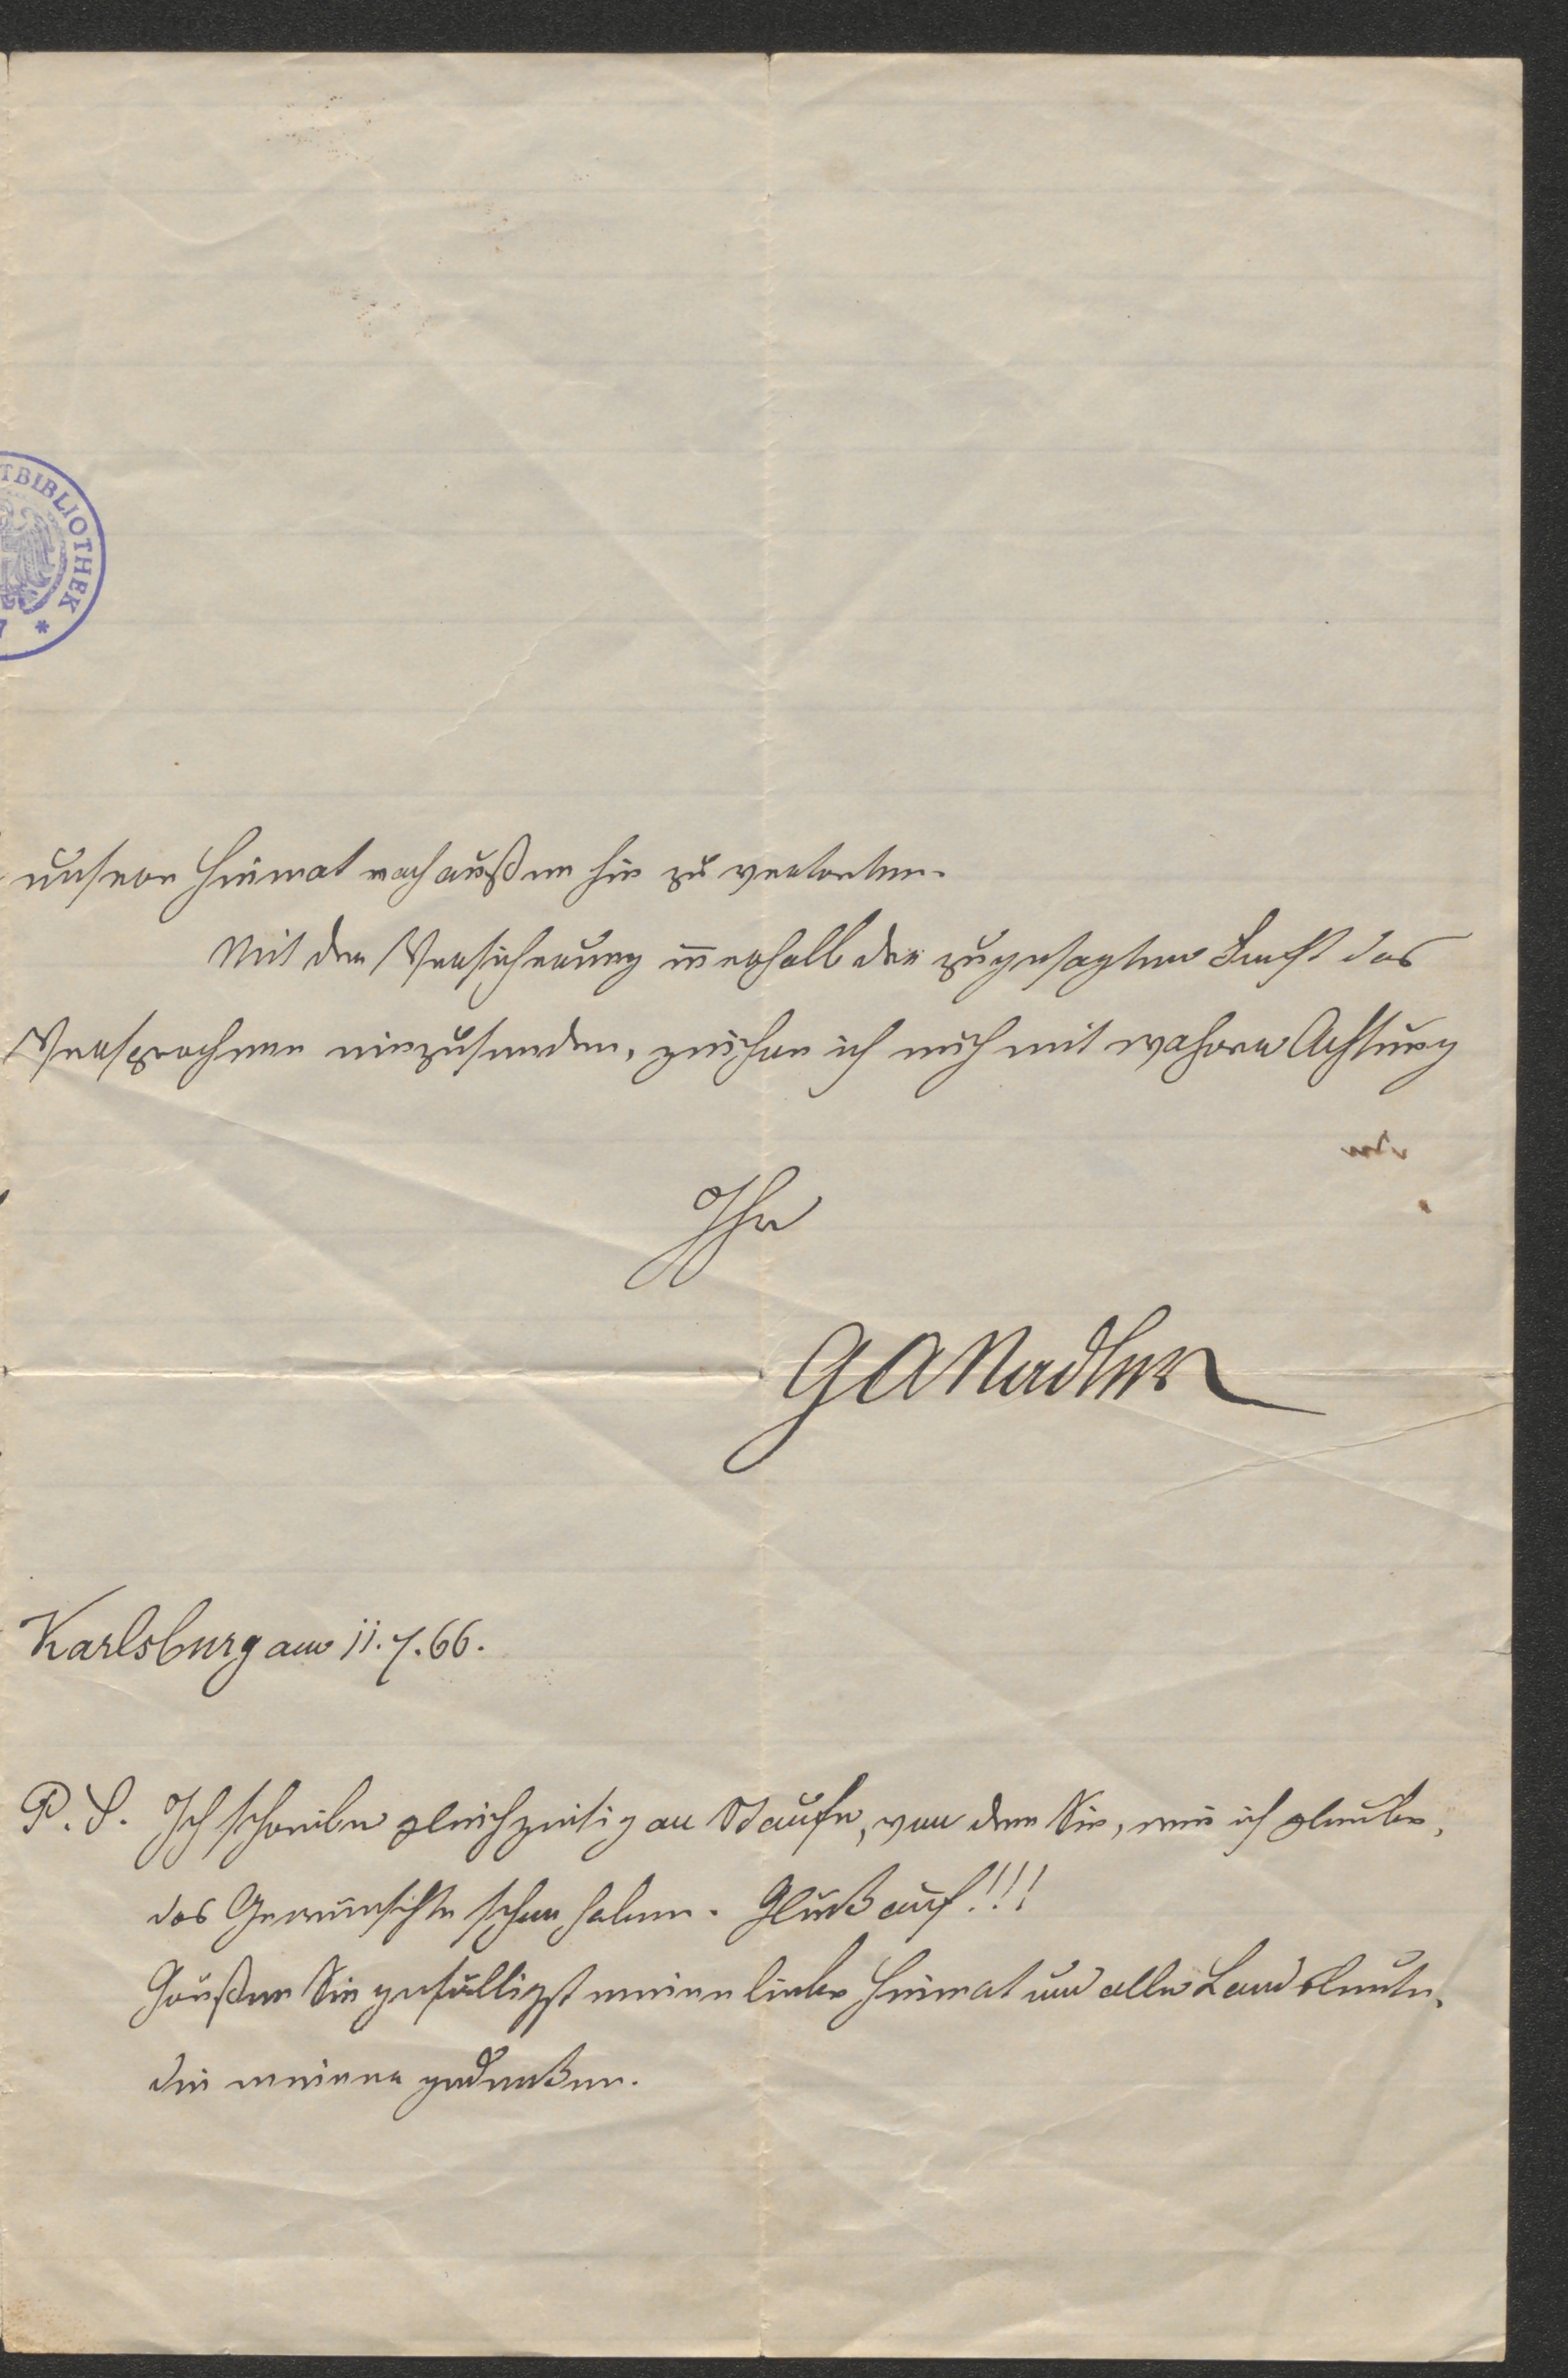 TBIBLIOTHEK *
unsere Heimat nach außen hin zu vertreten.
Mit der Versicherung innerhalb der zugesagten Frist das
Versprochene einzusenden, zeichne ich mich mit wahrer Achtung
Ihr
GANadler
Karlsburg am 11.7.66.
P.S. Ich schreibe gleichzeitig an Staufe, von dem Sie, wie ich glaube,
das Gewünschte schon haben. Glück auf!!!
Grüßen Sie gefälligst meine liebe Heimat und alle Landsleute,
die meiner gedenken.